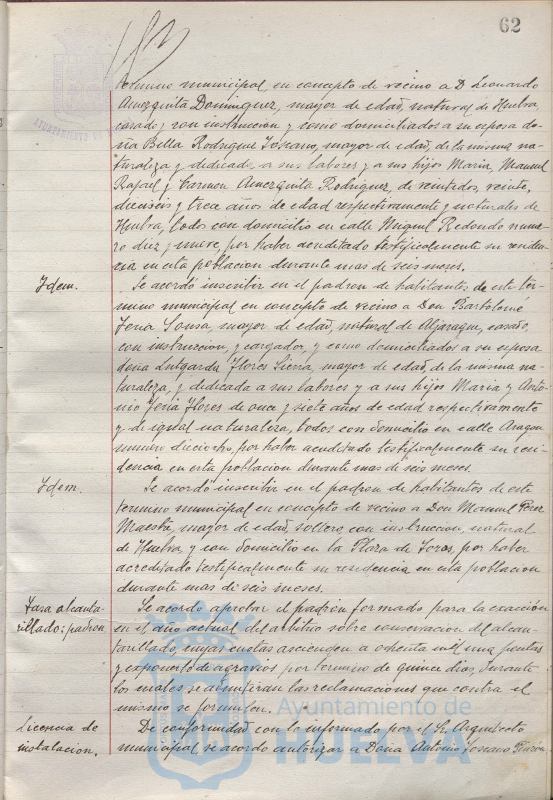 62
término municipal, en concepto de vecino a D Leonardo
Amezquita Dominguez, mayor de edad, natural de Huelva,
casado, con instruccion y como domiciliados a su esposa do-
ña Bella Rodriguez Toscano, mayor de edad, de la misma na-
turaleza y dedicada a sus labores y a sus hijos Maria, Manuel
Rafael y Carmen Amezquita Rodriguez, de veintidos, veinte,
dieciseis y trece años de edad respectivamente y naturales de
Huelva, todos con domicilio en calle Miguel Redondo nume-
ro diez y nueve, por haber acreditado testificalmente su residen-
cia en esta poblacion durante mas de seis meses.
Idem. Se acordó inscribir en el padron de habitantes de este tér-
mino municipal en concepto de vecino a Don Bartolomé
Feria Sousa, mayor de edad, natural de Aljaraque, casado,
con instruccion, y cargador, y como domiciliados a su esposa
doña Lutgarda Flores Sierra, mayor de edad, de la misma na-
turaleza, y dedicada a sus labores y a sus hijos Maria y Anto-
nio Feria Flores de once y siete años de edad respectivamente
y de igual naturaleza, todos con domicilio en calle Aragon
numero dieciocho, por haber acreditado testificalmente su resi-
dencia en esta poblacion durante mas de seis meses.
Idem. Se acordó inscribir en el padron de habitantes de este
termino municipal en concepto de vecino a Don Manuel Perez
Maestre, mayor de edad, soltero con instruccion, natural
de Huelva y con domicilio en la Plaza de Toros, por haber
acreditado testificalmente su residencia en esta poblacion
durante mas de seis meses.
Tasa alcanta- Se acordo aprobar el padron formado para la exacción
rillado; padron en el año actual del arbitrio sobre conservacion del alcan-
tarillado, cuyas cuotas ascienden a ochenta mil una pesetas
y exponerlo de agravios por termino de quince dias, durante
los cuales se admitiran las reclamaciones que contra el
mismo se formulen.
Licencia de De conformidad con lo informado por el Sr. Arquitecto
instalacion. municipal se acordo autorizar a Doña Antonia Toscano
Ayuntamiento de
HUELVA